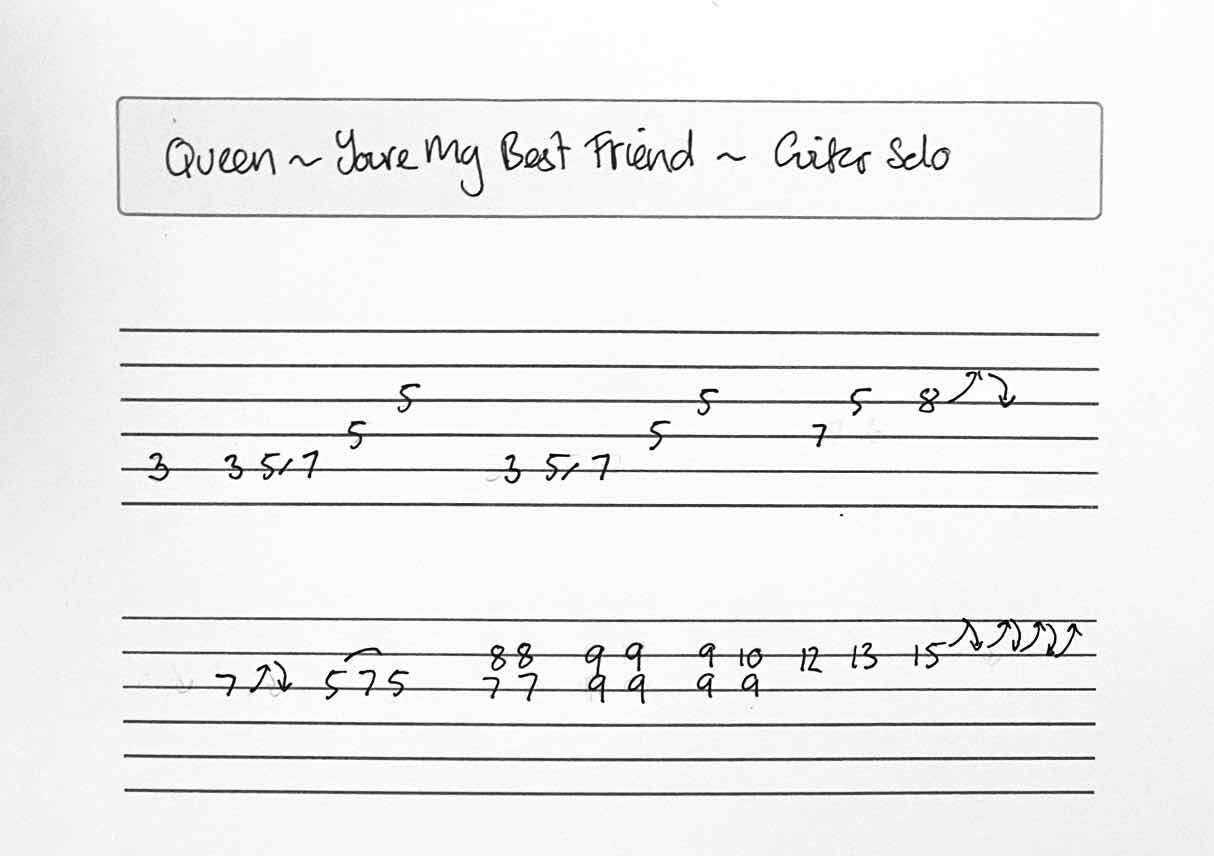 Queen ~ Youre My Best Friend ~ Guitar Solo
5 5
5 5 8
5 5 7
3 3 5/7 3 5/7
8 8 9 9 9 10 12 13 15
7 5 7 5 7 7 9 9 9 9